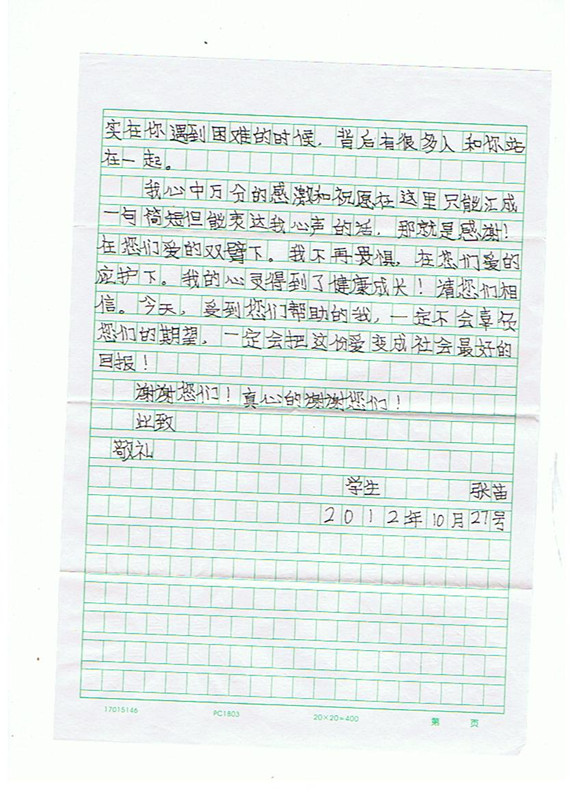 实在你遇到困难的时候，背后有很多人和你站
在一起。
我心中万分的感激和祝愿在这里只能汇成
一句简短但能表达我心声的话，那就是感谢！
在您们爱的双臂下。我不再畏惧，在您们爱的
庇护下。我的心灵得到了健康成长！请您们相
信。今天，受到您们帮助的我，一定不会辜负
您们的期望，一定会把这份爱变成社会最好的
回报！
谢谢您们！真心的谢谢您们！
此致
敬礼
学生 张苗
2012年10月27号
17015146 PC1803 20×20=400 第 页